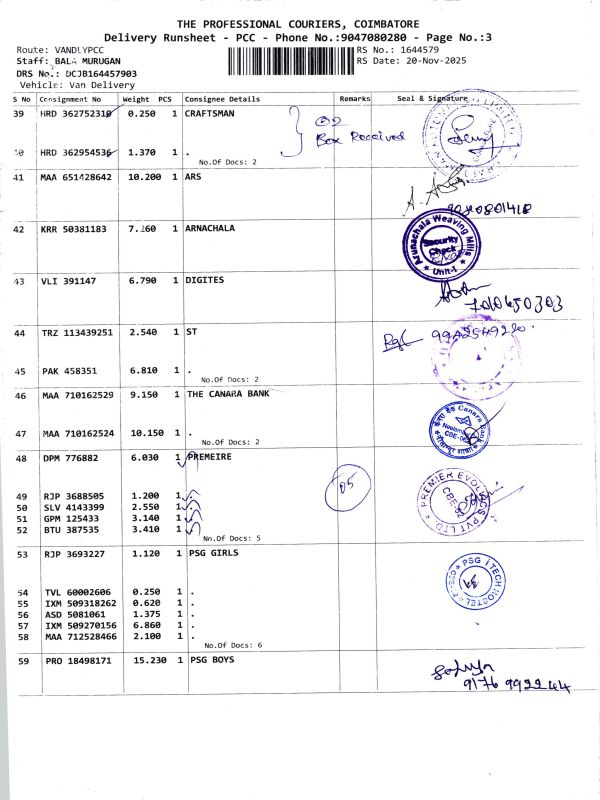 THE PROFESSIONAL COURIERS, COIMBATORE
Delivery Runsheet - PCC - Phone No.:9047080280 - Page No.:3
Route: VANDLYPCC RS No.: 1644579
Staff: BALA MURUGAN RS Date: 20-Nov-2025
DRS No.: DCJB164457903
Vehicle: Van Delivery
S No Consignment No Weight PCS Consignee Details Remarks Seal & Signature
39 HRD 362752310 0.250 1 CRAFTSMAN
02
Box Received
40 HRD 362954536 1.370 1 .
No.Of Docs: 2
41 MAA 651428642 10.200 1 ARS
42 KRR 50381183 7.260 1 ARNACHALA
Arunachala Weaving Mills
Security Check
Unit-I
43 VLI 391147 6.790 1 DIGITES
44 TRZ 113439251 2.540 1 ST
45 PAK 458351 6.810 1 .
No.Of Docs: 2
46 MAA 710162529 9.150 1 THE CANARA BANK
Canara Bank
47 MAA 710162524 10.150 1 .
No.Of Docs: 2
48 DPM 776882 6.030 1 PREMEIRE
05
49 RJP 3688505 1.200 1 .
50 SLV 4143399 2.550 1 .
51 GPM 125433 3.140 1 .
52 BTU 387535 3.410 1 .
No.Of Docs: 5
53 RJP 3693227 1.120 1 PSG GIRLS
54 TVL 60002606 0.250 1 .
55 IXM 509318262 0.620 1 .
56 ASD 5081061 1.375 1 .
57 IXM 509270156 6.860 1 .
58 MAA 712528466 2.100 1 .
No.Of Docs: 6
59 PRO 18498171 15.230 1 PSG BOYS
9176 992244